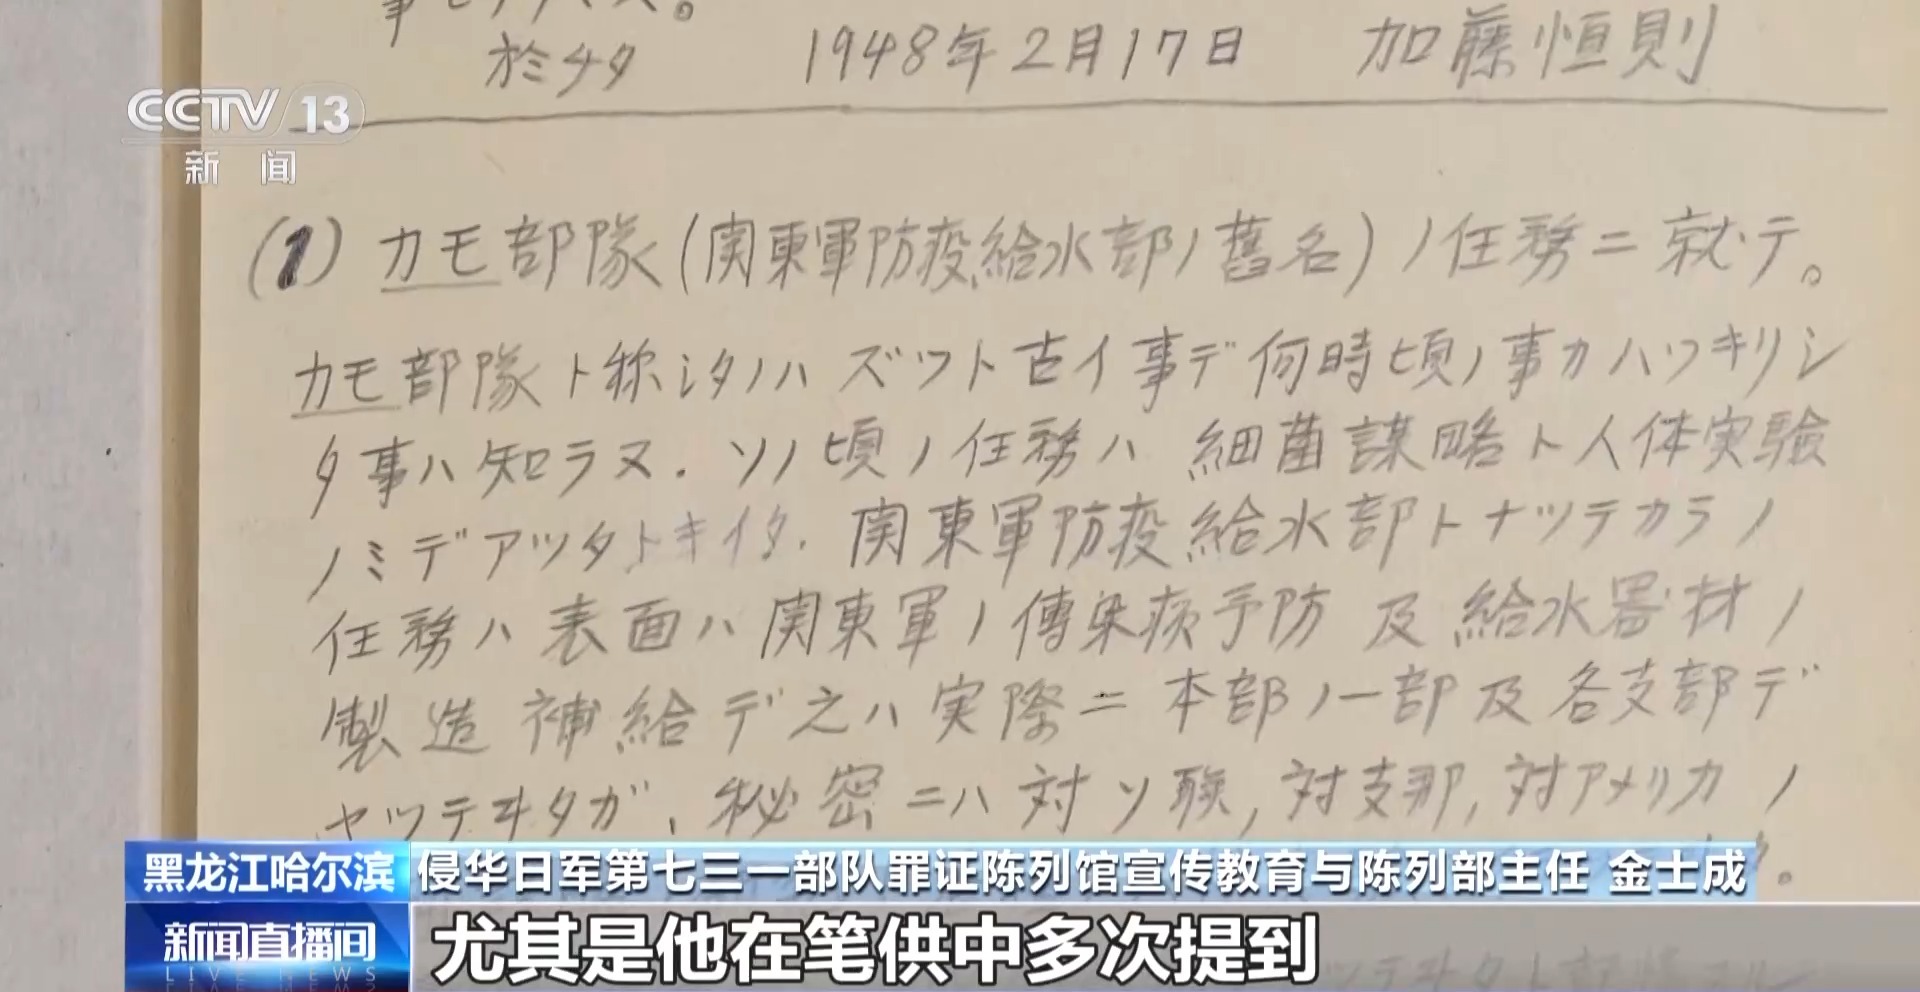 於チタ 1948年2月17日 加藤恒則
CCTV 13
新闻
(1) カモ部隊(関東軍防疫給水部ノ舊名)ノ任務ニ就テ。
カモ部隊ト称シタノハズツト古イ事デ何時頃ノ事カハツキリシ
タ事ハ知ラヌ. ソノ頃ノ任務ハ細菌謀略ト人体実験
ノミデアツタトキイタ. 関東軍防疫給水部トナツテカラノ
任務ハ表面ハ関東軍ノ傳染病予防及給水器材ノ
製造補給デ之ハ実際ニ本部ノ一部及各支部デ
ヤツテヰタガ、秘密ニハ対ソ聯,対支那,対アメリカノ
黑龙江哈尔滨 侵华日军第七三一部队罪证陈列馆宣传教育与陈列部主任 金士成
新闻直播间
LIVE NEWS
尤其是他在笔供中多次提到